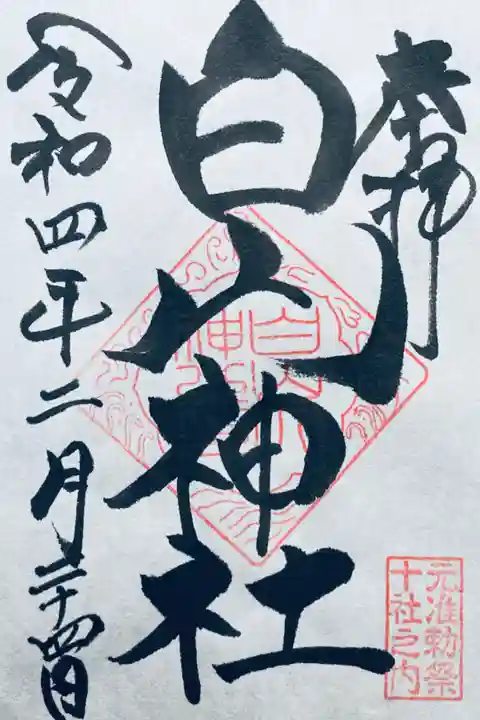 奉拝
白山神社
令和四年二月二十四日
元准勅祭
十社之内